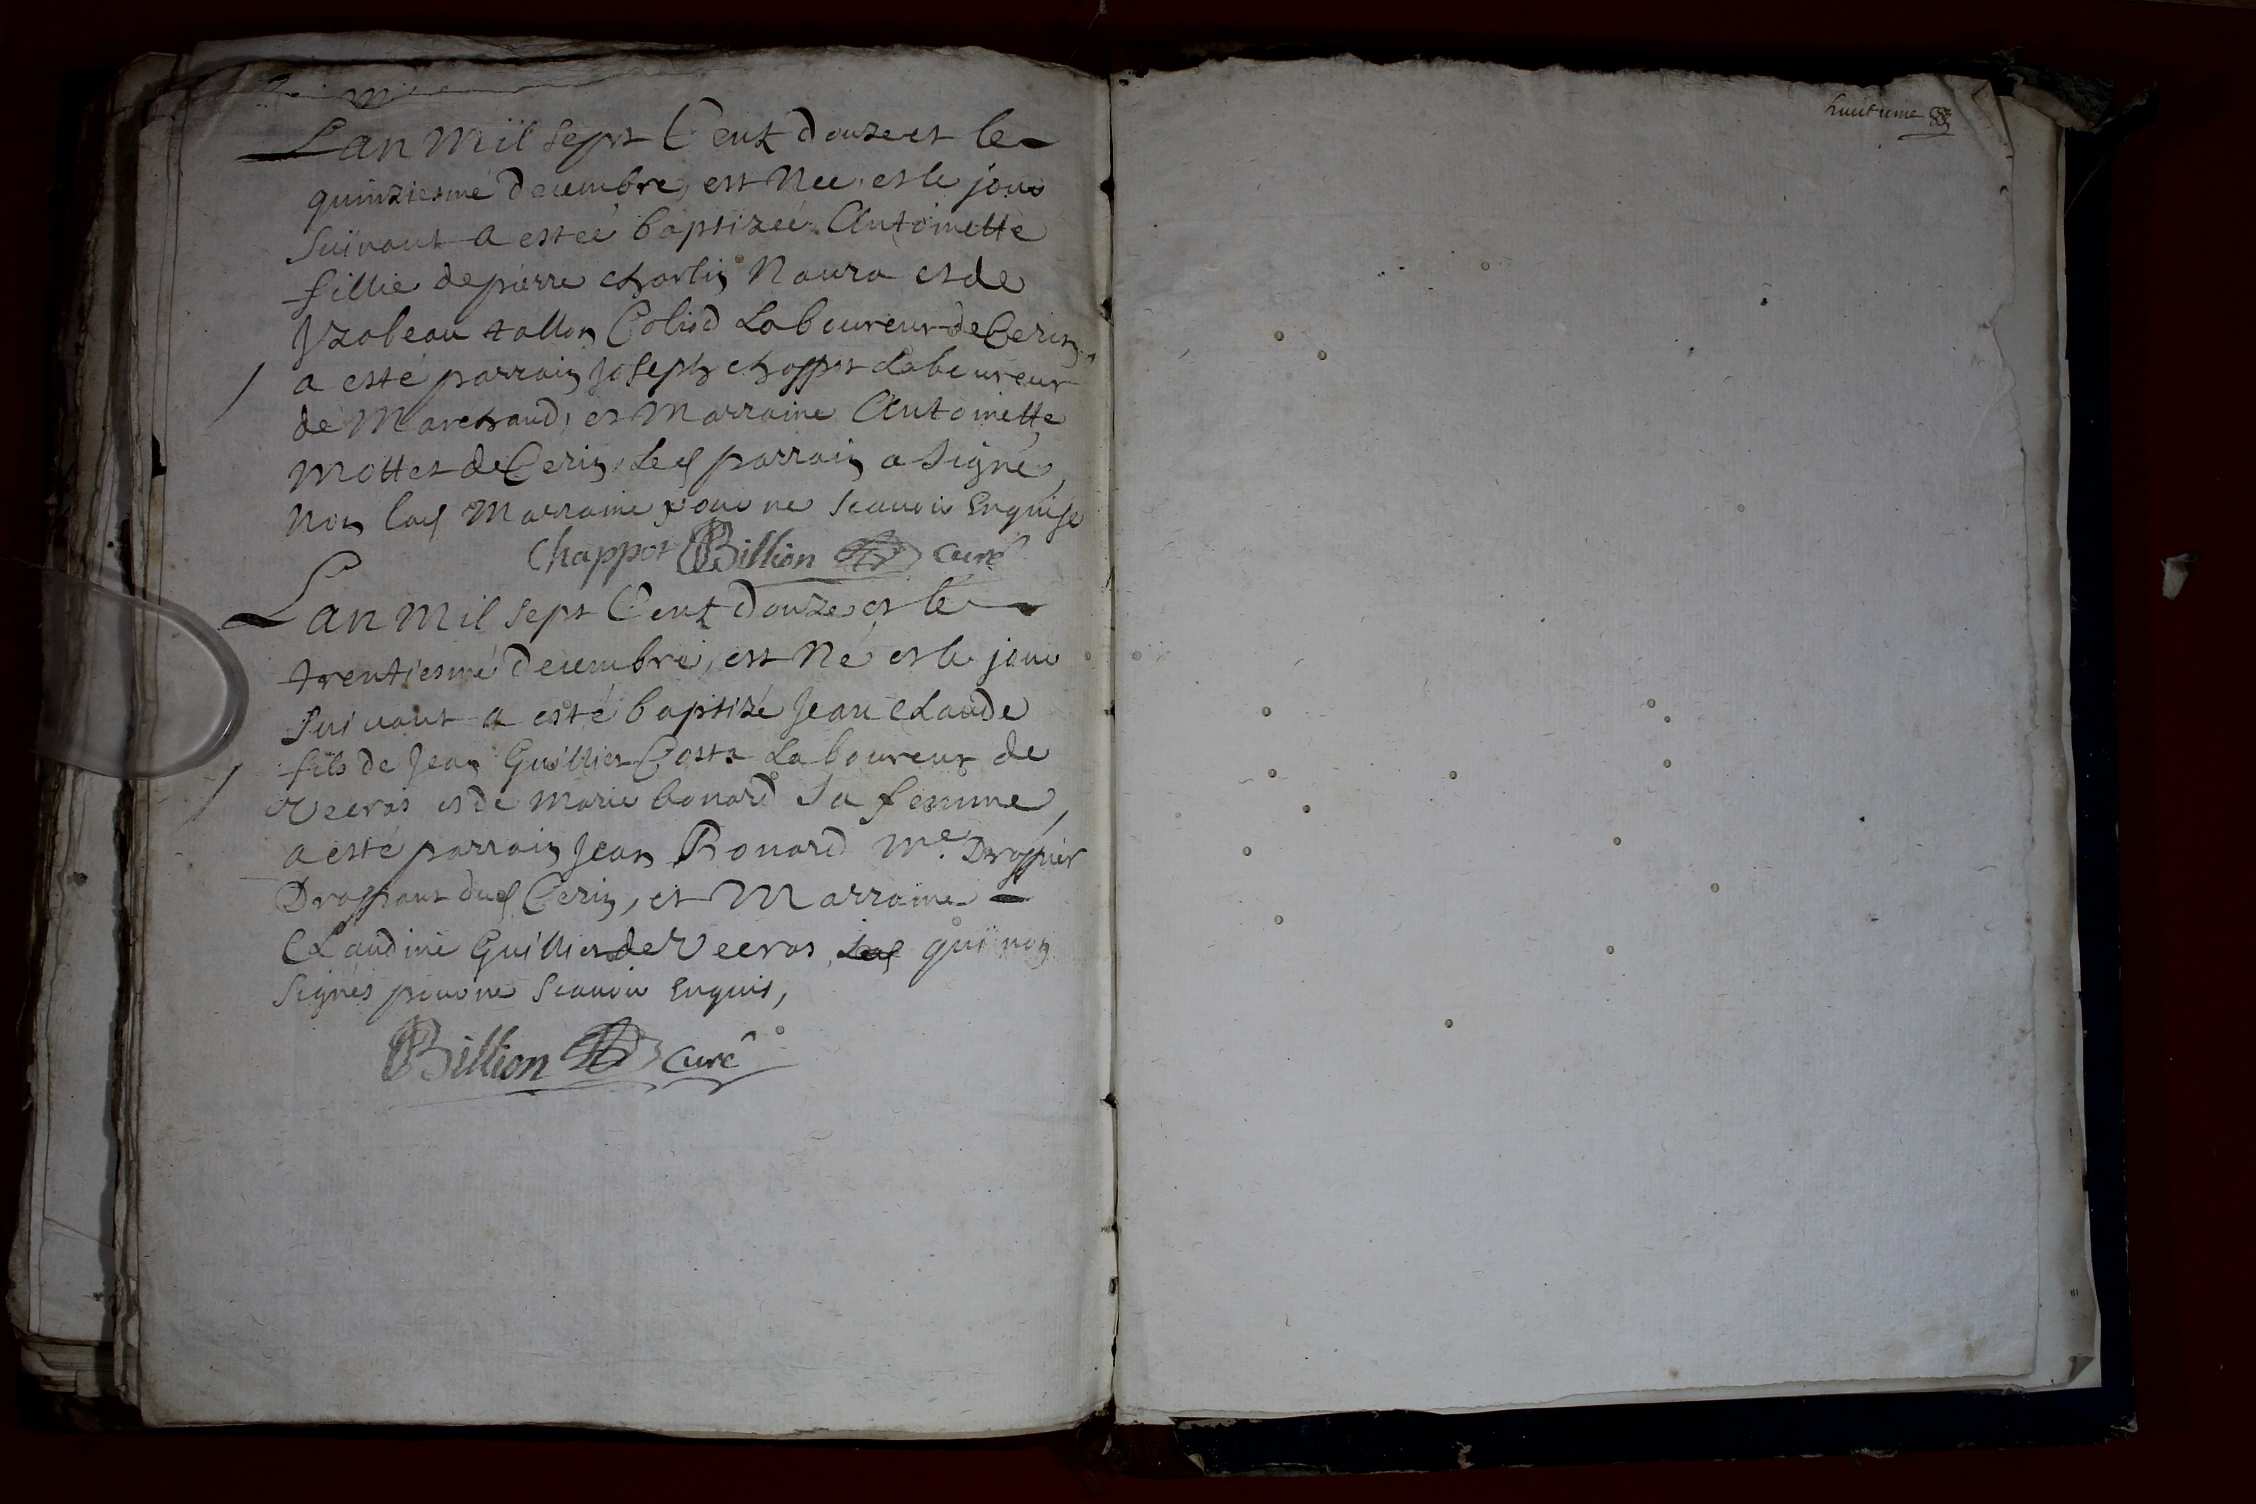 Lan Mil sept Cent douze et le
quinziesme decembre, est Nee, et le jour
suivant a esteé baptizeé Antoinette
fillie de pierre charlin Naura et de
Yzabeau tallon Coliod Laboureur de Cerin
a esté parrain Joseph chappot Laboureur
de Marchand, et Marraine Antoinette
Mottet de Cerin, Led parrain a signé,
Non lad Marraine pour ne scauoir Enquise
Chappot Billion Curé
Lan Mil sept Cent douze et le
trentiesme decembre, est Né et le jour
suiuant a esté baptizé Jean Claude
fils de Jean Guillier Costa Laboureur de
Veeras et de Marie bonard sa femme,
a esté parrain Jean Bonard Me. Drappier
Drappant dud Cerin, et Marraine
Claudine Guillier de Veeras, qui non
signés pour ne scauoir Enquis,
Billion Curé
huitieme